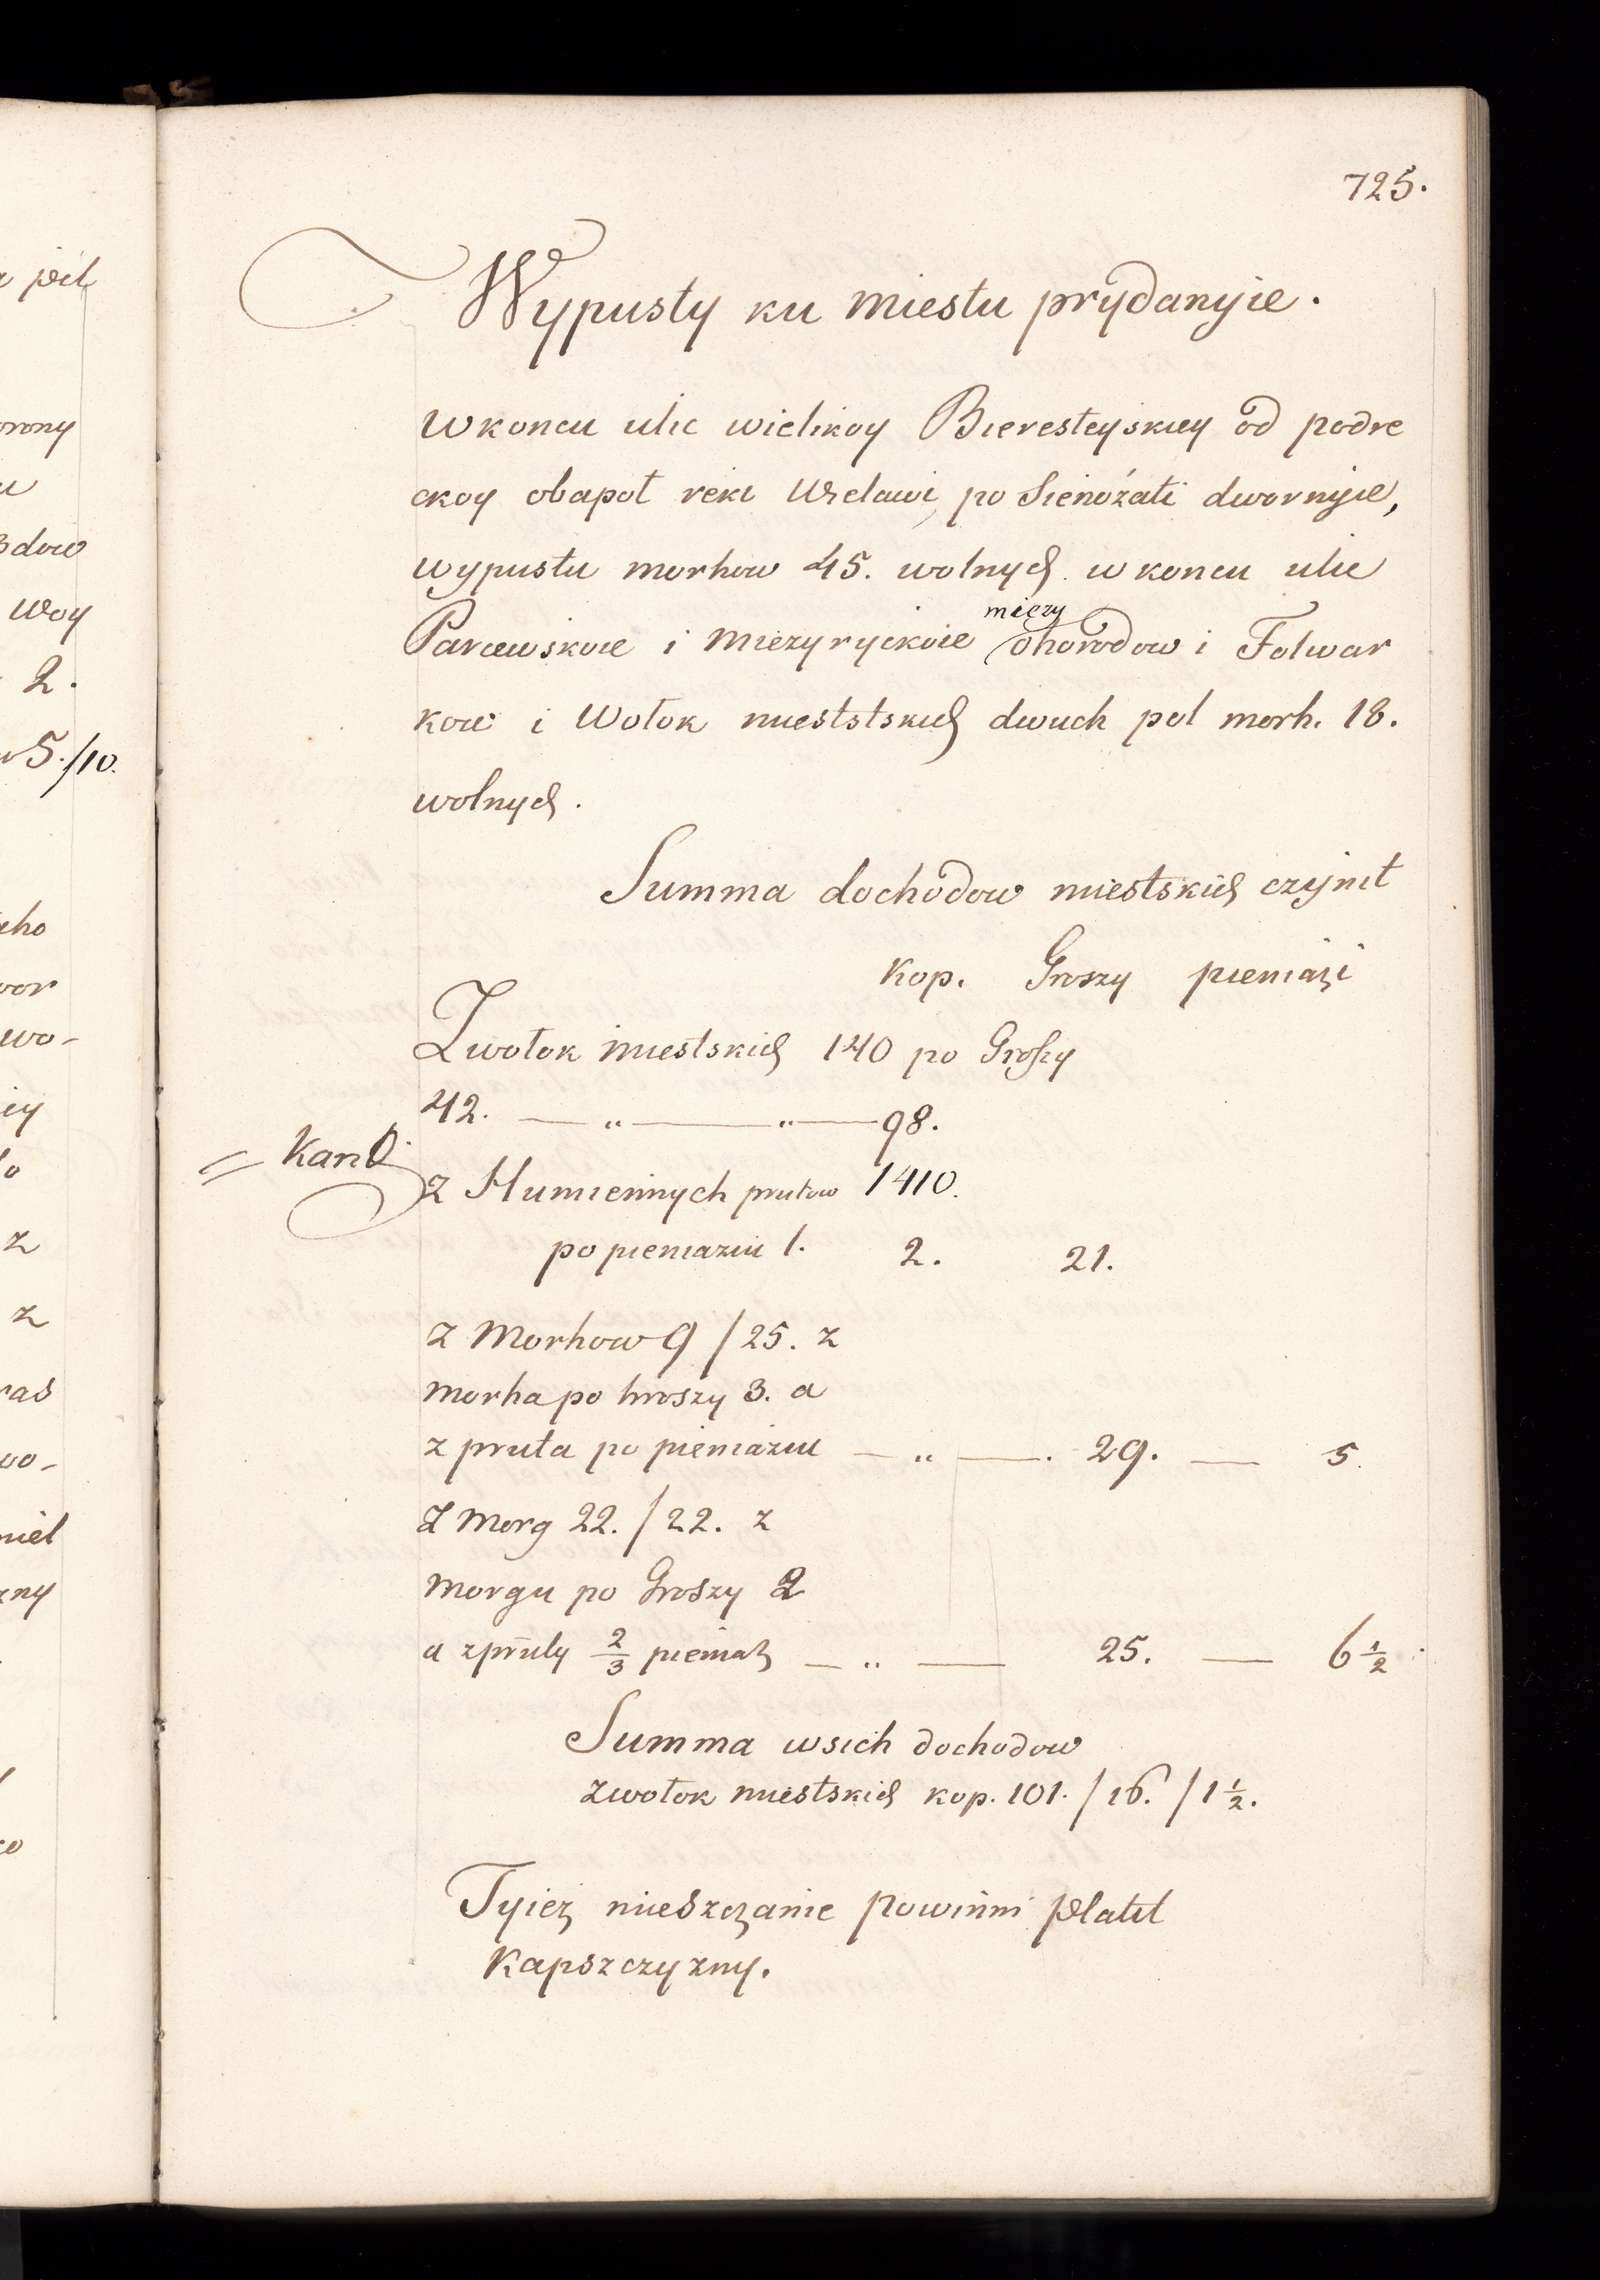 725.
Wypusty ku miestu prydanyie.
w koncu ulic wielikoy Bieresteyskiey od podre
ckoy obapoł reki Uielawi, po Sienożati dwornyie,
wypustu morhow 45. wolnych w koncu ulic
Parcewskoie i Miezyryckoie miezy ohorodow i Folwar
kow i Wołok mieststskich dwuch pol morh. 18.
wolnych.
Summa dochodow miestskich czynit
Kop. Groszy pieniazi
Z wołok miestskich 140 po Groszy
42. — „ — „ — 98.
= Kand
z Humiennych prutow 1410.
po pieniaziu 1. 2. 21.
z Morhow 9 / 25. z
morha po hroszy 3. a
z pruta po pieniaziu — „ — . 29. — 5.
Z Morg 22. / 22. z
morgu po Groszy 2
a z pruty 2/3 pieniaz — „ — 25. — 6 1/2.
Summa wsich dochodow
z wołok miestskich kop. 101. / 16. / 1 1/2.
Tyież mieszczanie powinni płatit
Kapszczyzny.
pit
orony
u
dow
woy
2.
5./10.
eho
wor
wo-
iey
o
z
z
ras
wo-
niel
zny